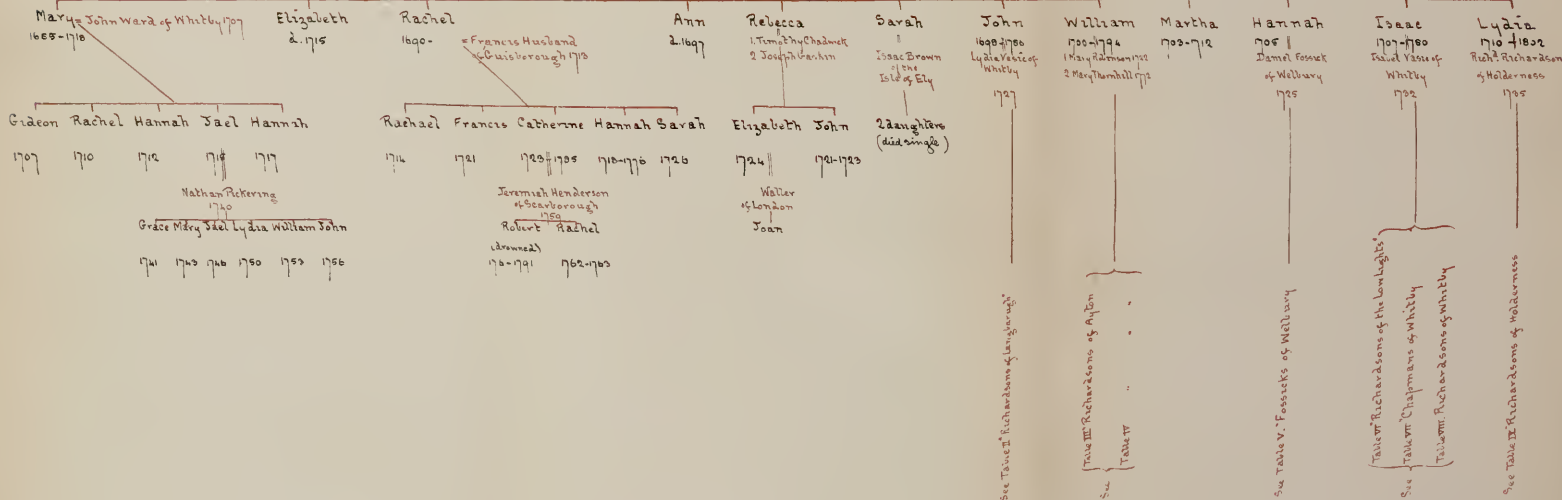 Mary = John Ward of Whitby 1707
1685-1718
Elizabeth
d. 1715
Rachel
1690-
= Francis Husband
of Guisborough 1713
Ann
d. 1697
Rebecca
1. Timothy Chadwick
2 Joseph
Sarah
Isaac Brown
of the
Isle of Ely
John
1698-1786
Lydia Vasie of
Whitby
1727
William
1700-1794
1 Mary Robinson 1722
2 Mary Thornhill 1772
Martha
1703-1712
Hannah
1705
Daniel Fossick
of Welbury
1725
Isaac
1707-1780
Isabel Vasie of
Whitby
1732
Lydia
1710-1802
Richd. Richardson
of Holderness
1735
Gideon Rachel Hannah Jael Hannah
1707 1710 1712 1717
Nathan Pickering
1740
Grace Mary Jael Lydia William John
1741 1743 1746 1750 1753 1756
Rachael Francis Catherine Hannah Sarah
1714 1721 1723 1795 1718-1776 1726
Jeremiah Henderson
of Scarborough
1759
Robert Rachel
(drowned)
1762-1763
Elizabeth John
1724 1721-1723
Waller
of London
Joan
2 daughters
(died single)
See Table II "Richardsons of Langbarugh"
See
Table III "Richardsons of Ayton
Table IV " " "
See Table V. "Fossicks of Welbury
See
Table VI "Richardsons of the Low Lights"
Table VII "Chapmans of Whitby
Table VIII. Richardsons of Whitby
See Table IX "Richardsons of Holderness